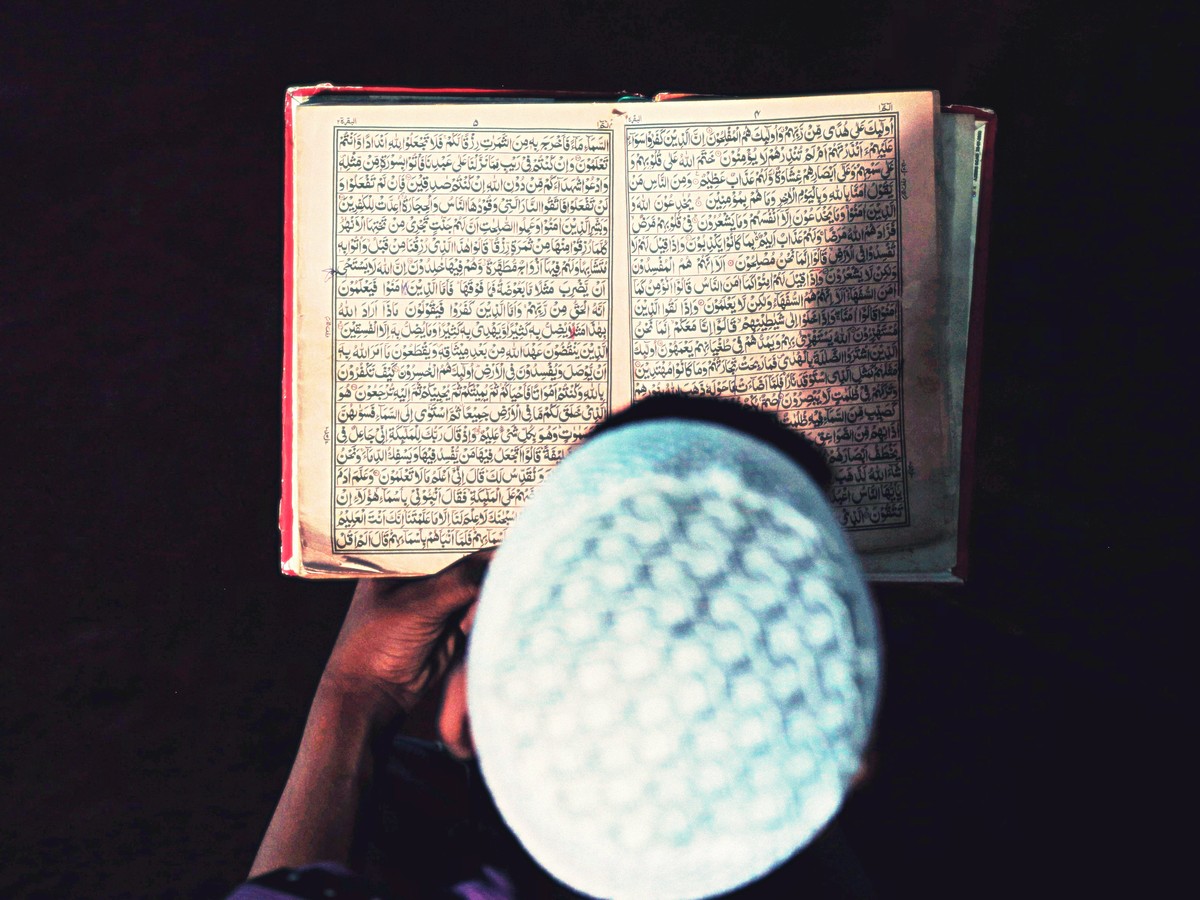 البقرة ٢ ۴ الٓمّٓ ١
اُولٰٓئِكَ عَلٰى هُدًى مِّنْ رَّبِّهِمْ وَاُولٰٓئِكَ هُمُ الْمُفْلِحُوْنَ اِنَّ الَّذِيْنَ كَفَرُوْا سَوَآءٌ
عَلَيْهِمْ ءَاَنْذَرْتَهُمْ اَمْ لَمْ تُنْذِرْهُمْ لَا يُؤْمِنُوْنَ خَتَمَ اللّٰهُ عَلٰى قُلُوْبِهِمْ وَ
عَلٰى سَمْعِهِمْ وَعَلٰٓى اَبْصَارِهِمْ غِشَاوَةٌ وَّلَهُمْ عَذَابٌ عَظِيْمٌ وَمِنَ النَّاسِ مَنْ
يَّقُوْلُ اٰمَنَّا بِاللّٰهِ وَبِالْيَوْمِ الْاٰخِرِ وَمَا هُمْ بِمُؤْمِنِيْنَ يُخٰدِعُوْنَ اللّٰهَ وَ
الَّذِيْنَ اٰمَنُوْا وَمَا يَخْدَعُوْنَ اِلَّآ اَنْفُسَهُمْ وَمَا يَشْعُرُوْنَ فِيْ قُلُوْبِهِمْ مَّرَضٌ
فَزَادَهُمُ اللّٰهُ مَرَضًا وَلَهُمْ عَذَابٌ اَلِيْمٌ بِمَا كَانُوْا يَكْذِبُوْنَ وَاِذَا قِيْلَ لَهُمْ لَا
تُفْسِدُوْا فِي الْاَرْضِ قَالُوْٓا اِنَّمَا نَحْنُ مُصْلِحُوْنَ اَلَآ اِنَّهُمْ هُمُ الْمُفْسِدُوْنَ
وَلٰكِنْ لَّا يَشْعُرُوْنَ وَاِذَا قِيْلَ لَهُمْ اٰمِنُوْا كَمَآ اٰمَنَ النَّاسُ قَالُوْٓا اَنُؤْمِنُ كَمَآ
اٰمَنَ السُّفَهَآءُ اَلَآ اِنَّهُمْ هُمُ السُّفَهَآءُ وَلٰكِنْ لَّا يَعْلَمُوْنَ وَاِذَا لَقُوا الَّذِيْنَ
اٰمَنُوْا قَالُوْٓا اٰمَنَّا وَاِذَا خَلَوْا اِلٰى شَيٰطِيْنِهِمْ قَالُوْٓا اِنَّا مَعَكُمْ اِنَّمَا نَحْنُ
مُسْتَهْزِءُوْنَ اَللّٰهُ يَسْتَهْزِئُ بِهِمْ وَيَمُدُّهُمْ فِيْ طُغْيَانِهِمْ يَعْمَهُوْنَ اُولٰٓئِكَ
الَّذِيْنَ اشْتَرَوُا الضَّلٰلَةَ بِالْهُدٰى فَمَا رَبِحَتْ تِّجَارَتُهُمْ وَمَا كَانُوْا مُهْتَدِيْنَ
مَثَلُهُمْ كَمَثَلِ الَّذِي اسْتَوْقَدَ نَارًا فَلَمَّآ اَضَآءَتْ مَا حَوْلَهٗ ذَهَبَ اللّٰهُ
وَتَرَكَهُمْ فِيْ ظُلُمٰتٍ لَّا يُبْصِرُوْنَ صُمٌّ
كَصَيِّبٍ مِّنَ السَّمَآءِ
اٰذَانِهِمْ مِّنَ الصَّوَاعِقِ
يَخْطَفُ اَبْصَارَهُمْ
شَآءَ اللّٰهُ لَذَهَبَ
يٰٓاَيُّهَا النَّاسُ
تَتَّقُوْنَ الَّذِيْ
البقرة ٢ ۵ الٓمّٓ ١
السَّمَآءِ مَآءً فَاَخْرَجَ بِهٖ مِنَ الثَّمَرٰتِ رِزْقًا لَّكُمْ فَلَا تَجْعَلُوْا لِلّٰهِ اَنْدَادًا وَّاَنْتُمْ
تَعْلَمُوْنَ وَاِنْ كُنْتُمْ فِيْ رَيْبٍ مِّمَّا نَزَّلْنَا عَلٰى عَبْدِنَا فَاْتُوْا بِسُوْرَةٍ مِّنْ مِّثْلِهٖ
وَادْعُوْا شُهَدَآءَكُمْ مِّنْ دُوْنِ اللّٰهِ اِنْ كُنْتُمْ صٰدِقِيْنَ فَاِنْ لَّمْ تَفْعَلُوْا وَ
لَنْ تَفْعَلُوْا فَاتَّقُوا النَّارَ الَّتِيْ وَقُوْدُهَا النَّاسُ وَالْحِجَارَةُ اُعِدَّتْ لِلْكٰفِرِيْنَ
وَبَشِّرِ الَّذِيْنَ اٰمَنُوْا وَعَمِلُوا الصّٰلِحٰتِ اَنَّ لَهُمْ جَنّٰتٍ تَجْرِيْ مِنْ تَحْتِهَا الْاَنْهٰرُ
كُلَّمَا رُزِقُوْا مِنْهَا مِنْ ثَمَرَةٍ رِّزْقًا قَالُوْا هٰذَا الَّذِيْ رُزِقْنَا مِنْ قَبْلُ وَاُتُوْا بِهٖ
مُتَشَابِهًا وَلَهُمْ فِيْهَآ اَزْوَاجٌ مُّطَهَّرَةٌ وَّهُمْ فِيْهَا خٰلِدُوْنَ اِنَّ اللّٰهَ لَا يَسْتَحْيٖٓ
اَنْ يَّضْرِبَ مَثَلًا مَّا بَعُوْضَةً فَمَا فَوْقَهَا فَاَمَّا الَّذِيْنَ اٰمَنُوْا فَيَعْلَمُوْنَ
اَنَّهُ الْحَقُّ مِنْ رَّبِّهِمْ وَاَمَّا الَّذِيْنَ كَفَرُوْا فَيَقُوْلُوْنَ مَاذَآ اَرَادَ اللّٰهُ
بِهٰذَا مَثَلًا يُضِلُّ بِهٖ كَثِيْرًا وَّيَهْدِيْ بِهٖ كَثِيْرًا وَمَا يُضِلُّ بِهٖٓ اِلَّا الْفٰسِقِيْنَ
الَّذِيْنَ يَنْقُضُوْنَ عَهْدَ اللّٰهِ مِنْ بَعْدِ مِيْثَاقِهٖ وَيَقْطَعُوْنَ مَآ اَمَرَ اللّٰهُ بِهٖٓ
اَنْ يُّوْصَلَ وَيُفْسِدُوْنَ فِي الْاَرْضِ اُولٰٓئِكَ هُمُ الْخٰسِرُوْنَ كَيْفَ تَكْفُرُوْنَ
بِاللّٰهِ وَكُنْتُمْ اَمْوَاتًا فَاَحْيَاكُمْ ثُمَّ يُمِيْتُكُمْ ثُمَّ يُحْيِيْكُمْ ثُمَّ اِلَيْهِ تُرْجَعُوْنَ هُوَ
الَّذِيْ خَلَقَ لَكُمْ مَّا فِي الْاَرْضِ جَمِيْعًا ثُمَّ اسْتَوٰٓى اِلَى السَّمَآءِ فَسَوّٰىهُنَّ
سَمٰوٰتٍ وَهُوَ بِكُلِّ شَيْءٍ عَلِيْمٌ وَاِذْ قَالَ رَبُّكَ لِلْمَلٰٓئِكَةِ اِنِّيْ جَاعِلٌ فِي
خَلِيْفَةً قَالُوْٓا اَتَجْعَلُ فِيْهَا مَنْ يُّفْسِدُ فِيْهَا وَيَسْفِكُ الدِّمَآءَ وَنَحْنُ
وَنُقَدِّسُ لَكَ قَالَ اِنِّيْٓ اَعْلَمُ مَا لَا تَعْلَمُوْنَ وَعَلَّمَ اٰدَمَ
عَرَضَهُمْ عَلَى الْمَلٰٓئِكَةِ فَقَالَ اَنْۢبِـُٔوْنِيْ بِاَسْمَآءِ هٰٓؤُلَآءِ اِنْ
سُبْحٰنَكَ لَا عِلْمَ لَنَآ اِلَّا مَا عَلَّمْتَنَا اِنَّكَ اَنْتَ الْعَلِيْمُ
بِاَسْمَآئِهِمْ فَلَمَّآ اَنْۢبَاَهُمْ بِاَسْمَآئِهِمْ قَالَ اَلَمْ اَقُلْ